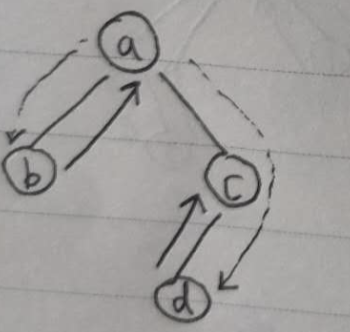 a
b
c
d